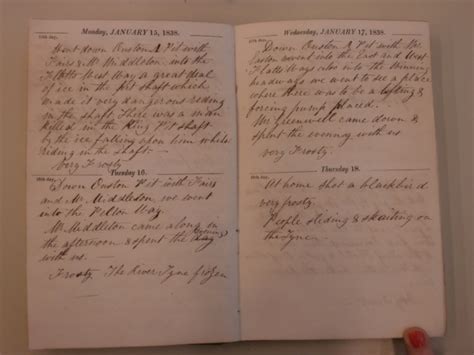 15th day. Monday, JANUARY 15, 1838.
Went down Ouston A Pit with
Fairs & Mr Middleton into the
Flatts West Way a great deal
of ice in the pit shaft which
made it very dangerous riding
in the shaft. There was a man
killed in the King Pit shaft
by the ice falling upon him while
riding in the shaft.
Very Frosty
16th day. Tuesday 16.
Down Ouston Pit with Fairs
and Mr Middleton, we went
into the Pelton Way.
Mr Middleton came along in
the afternoon & spent the evening
with us.
Frosty. The River Tyne frozen
17th day. Wednesday, JANUARY 17, 1838.
Down Ouston A Pit with Mr
Easton went into the East and West
Flatts Ways also into the Winning
headways we went to see a place
where there was to be a lifting &
forcing pump placed.
Mr Greenwell came down &
spent the evening with us
very Frosty.
18th day. Thursday 18.
At home shot a blackbird
very frosty.
People sliding & skaiting on
the Tyne.